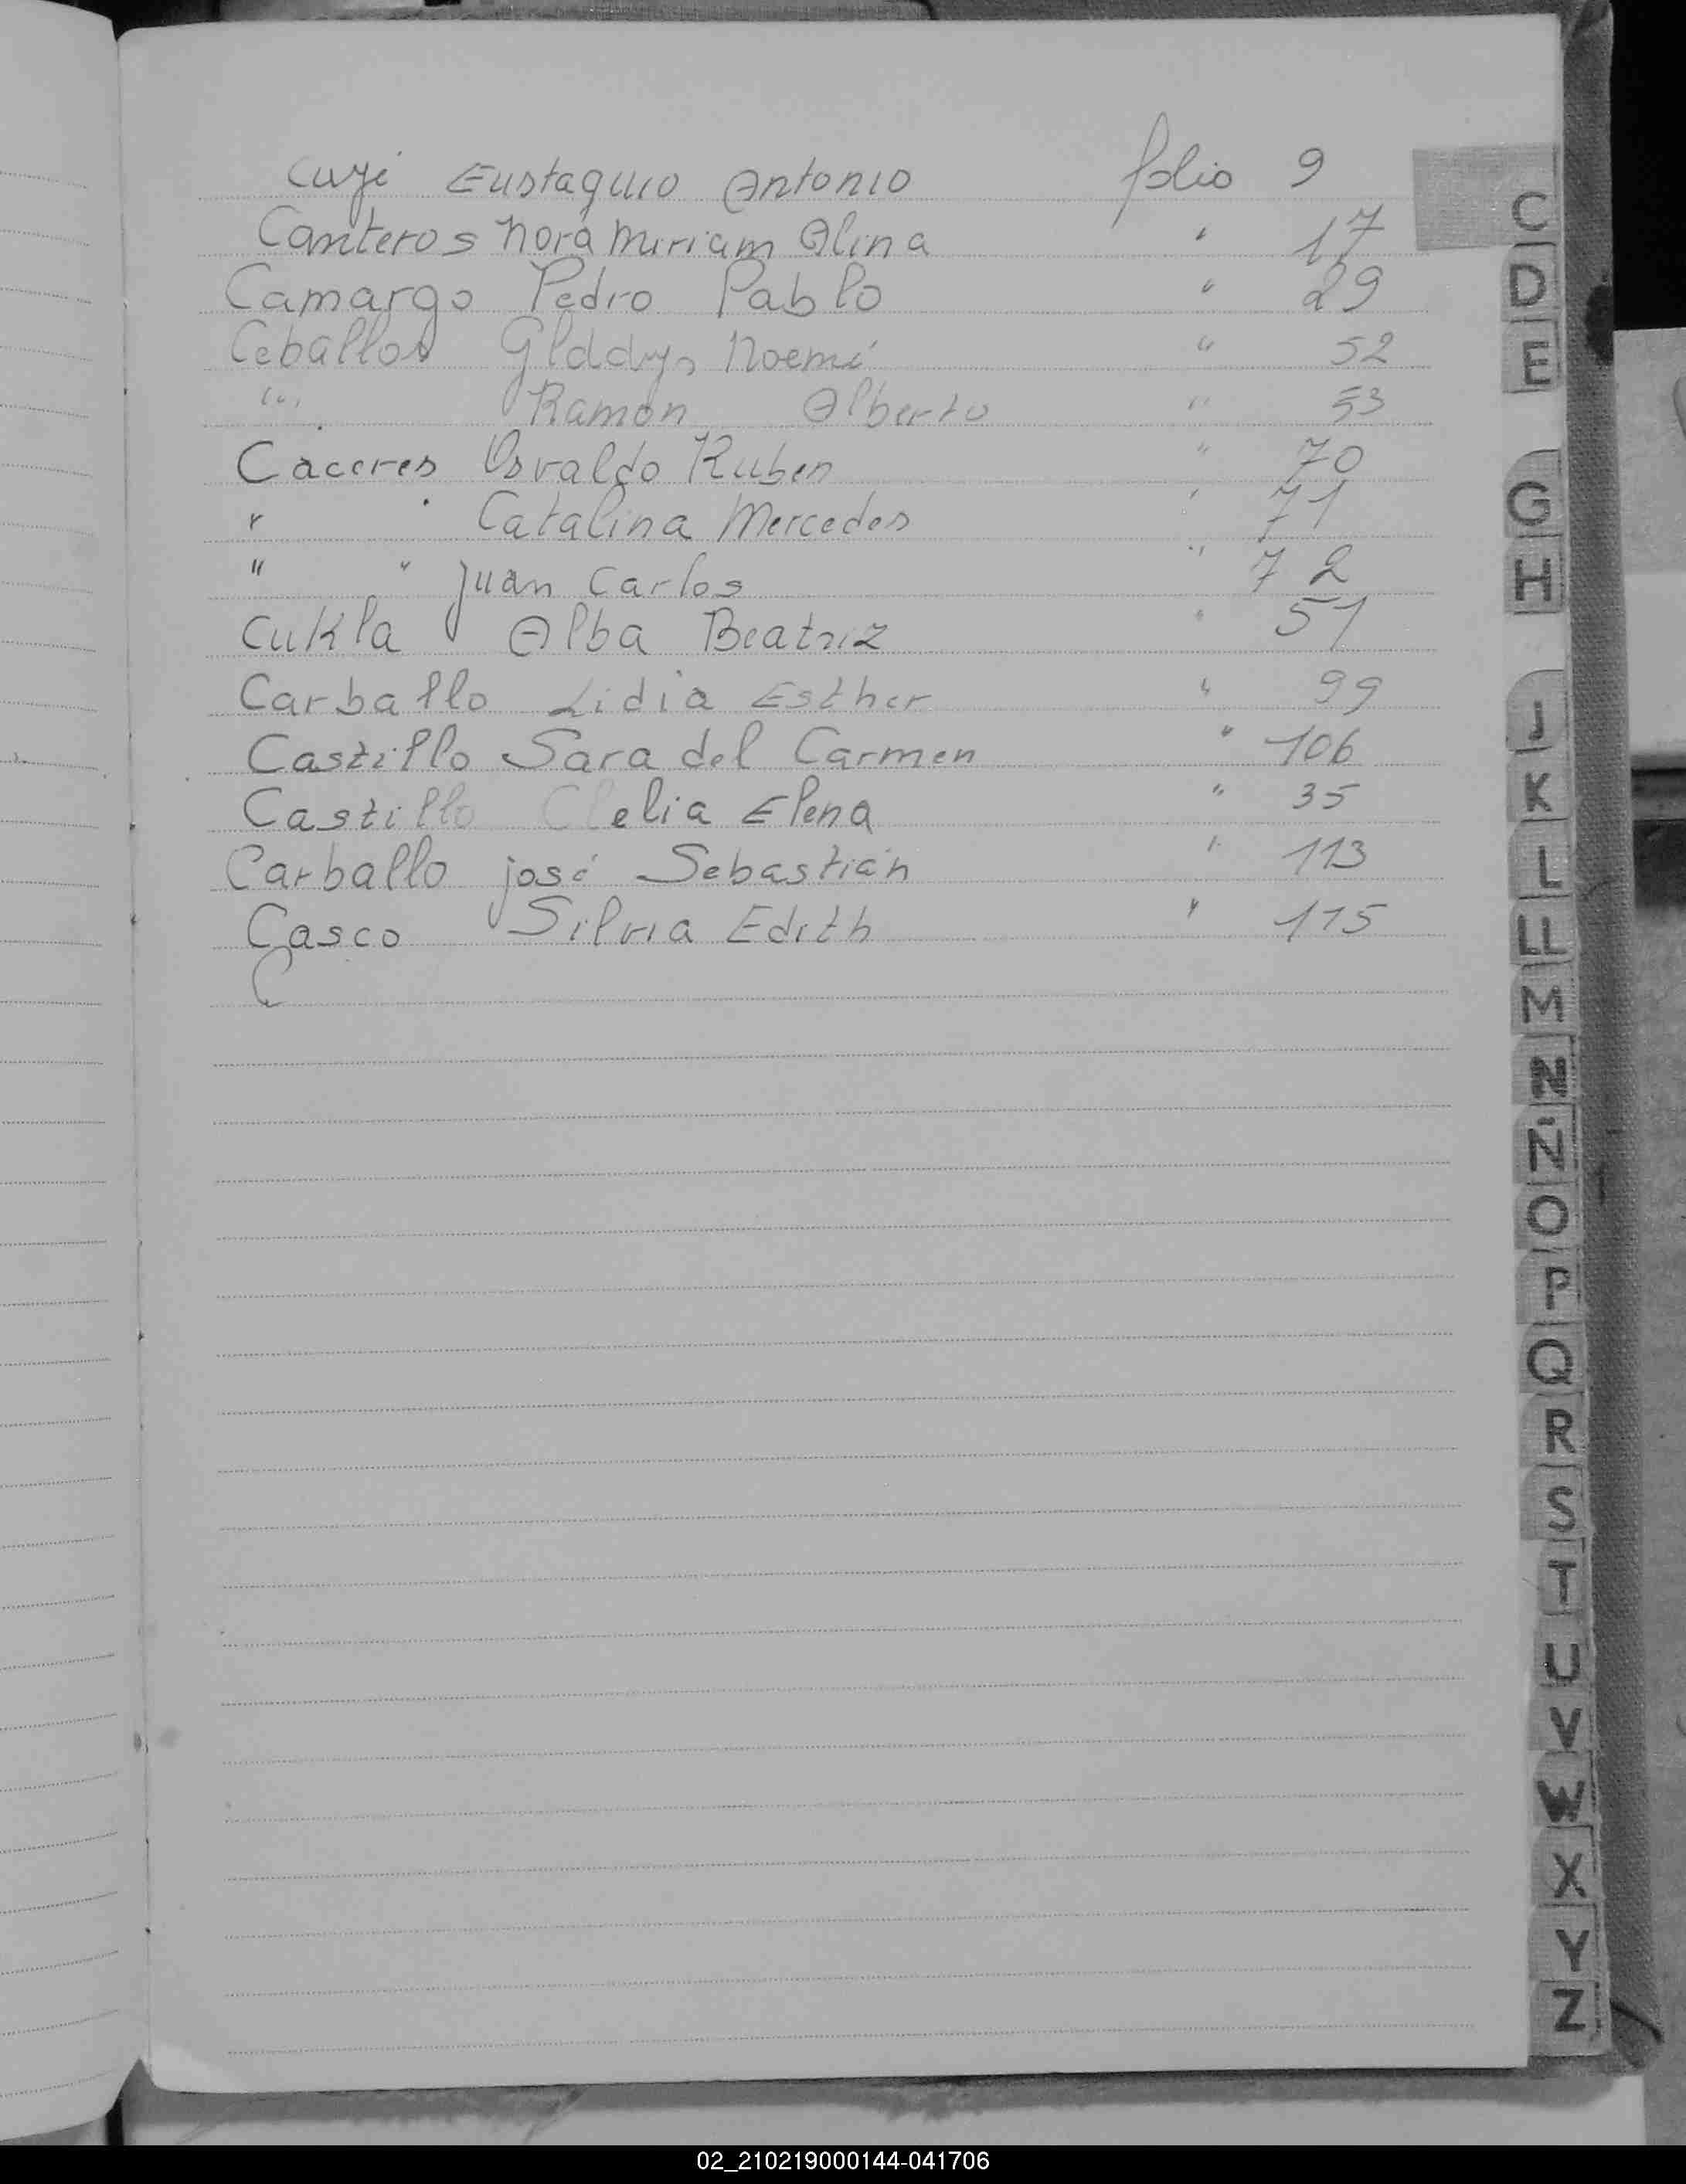 Cuyé Eustaquio Antonio folio 9
Canteros Nora Miriam Alina " 17
Camargo Pedro Pablo " 29
Ceballos Glddys Noemí " 52
" Ramón Alberto " 53
Caceres Osvaldo Ruben " 70
" " Catalina Mercedes " 71
" " Juan Carlos " 72
Cukla Alba Beatriz " 51
Carballo Lidia Esther " 99
Castillo Sara del Carmen " 106
Castillo Clelia Elena " 35
Carballo José Sebastián " 113
Casco Silvia Edith " 115
C
C
D
E
G
H
J
K
L
LL
M
N
Ñ
O
P
Q
R
S
T
U
V
W
X
Y
Z
02_210219000144-041706